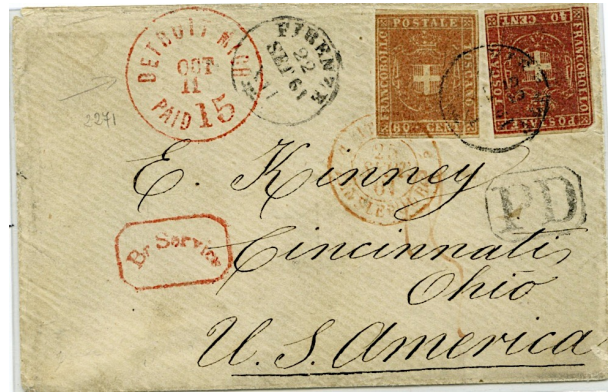 DETROIT MICH.
OCT
11
PAID 15
FIRENZE
22
SET 61
FRANCOBOLLO
POSTALE
TOSCANO
80 CENT
FRANCOBOLLO
POSTALE
TOSCANO
40 CENT
2271
E. Kinney
PD
Br Service
Cincinnati,
Ohio
U.S. America